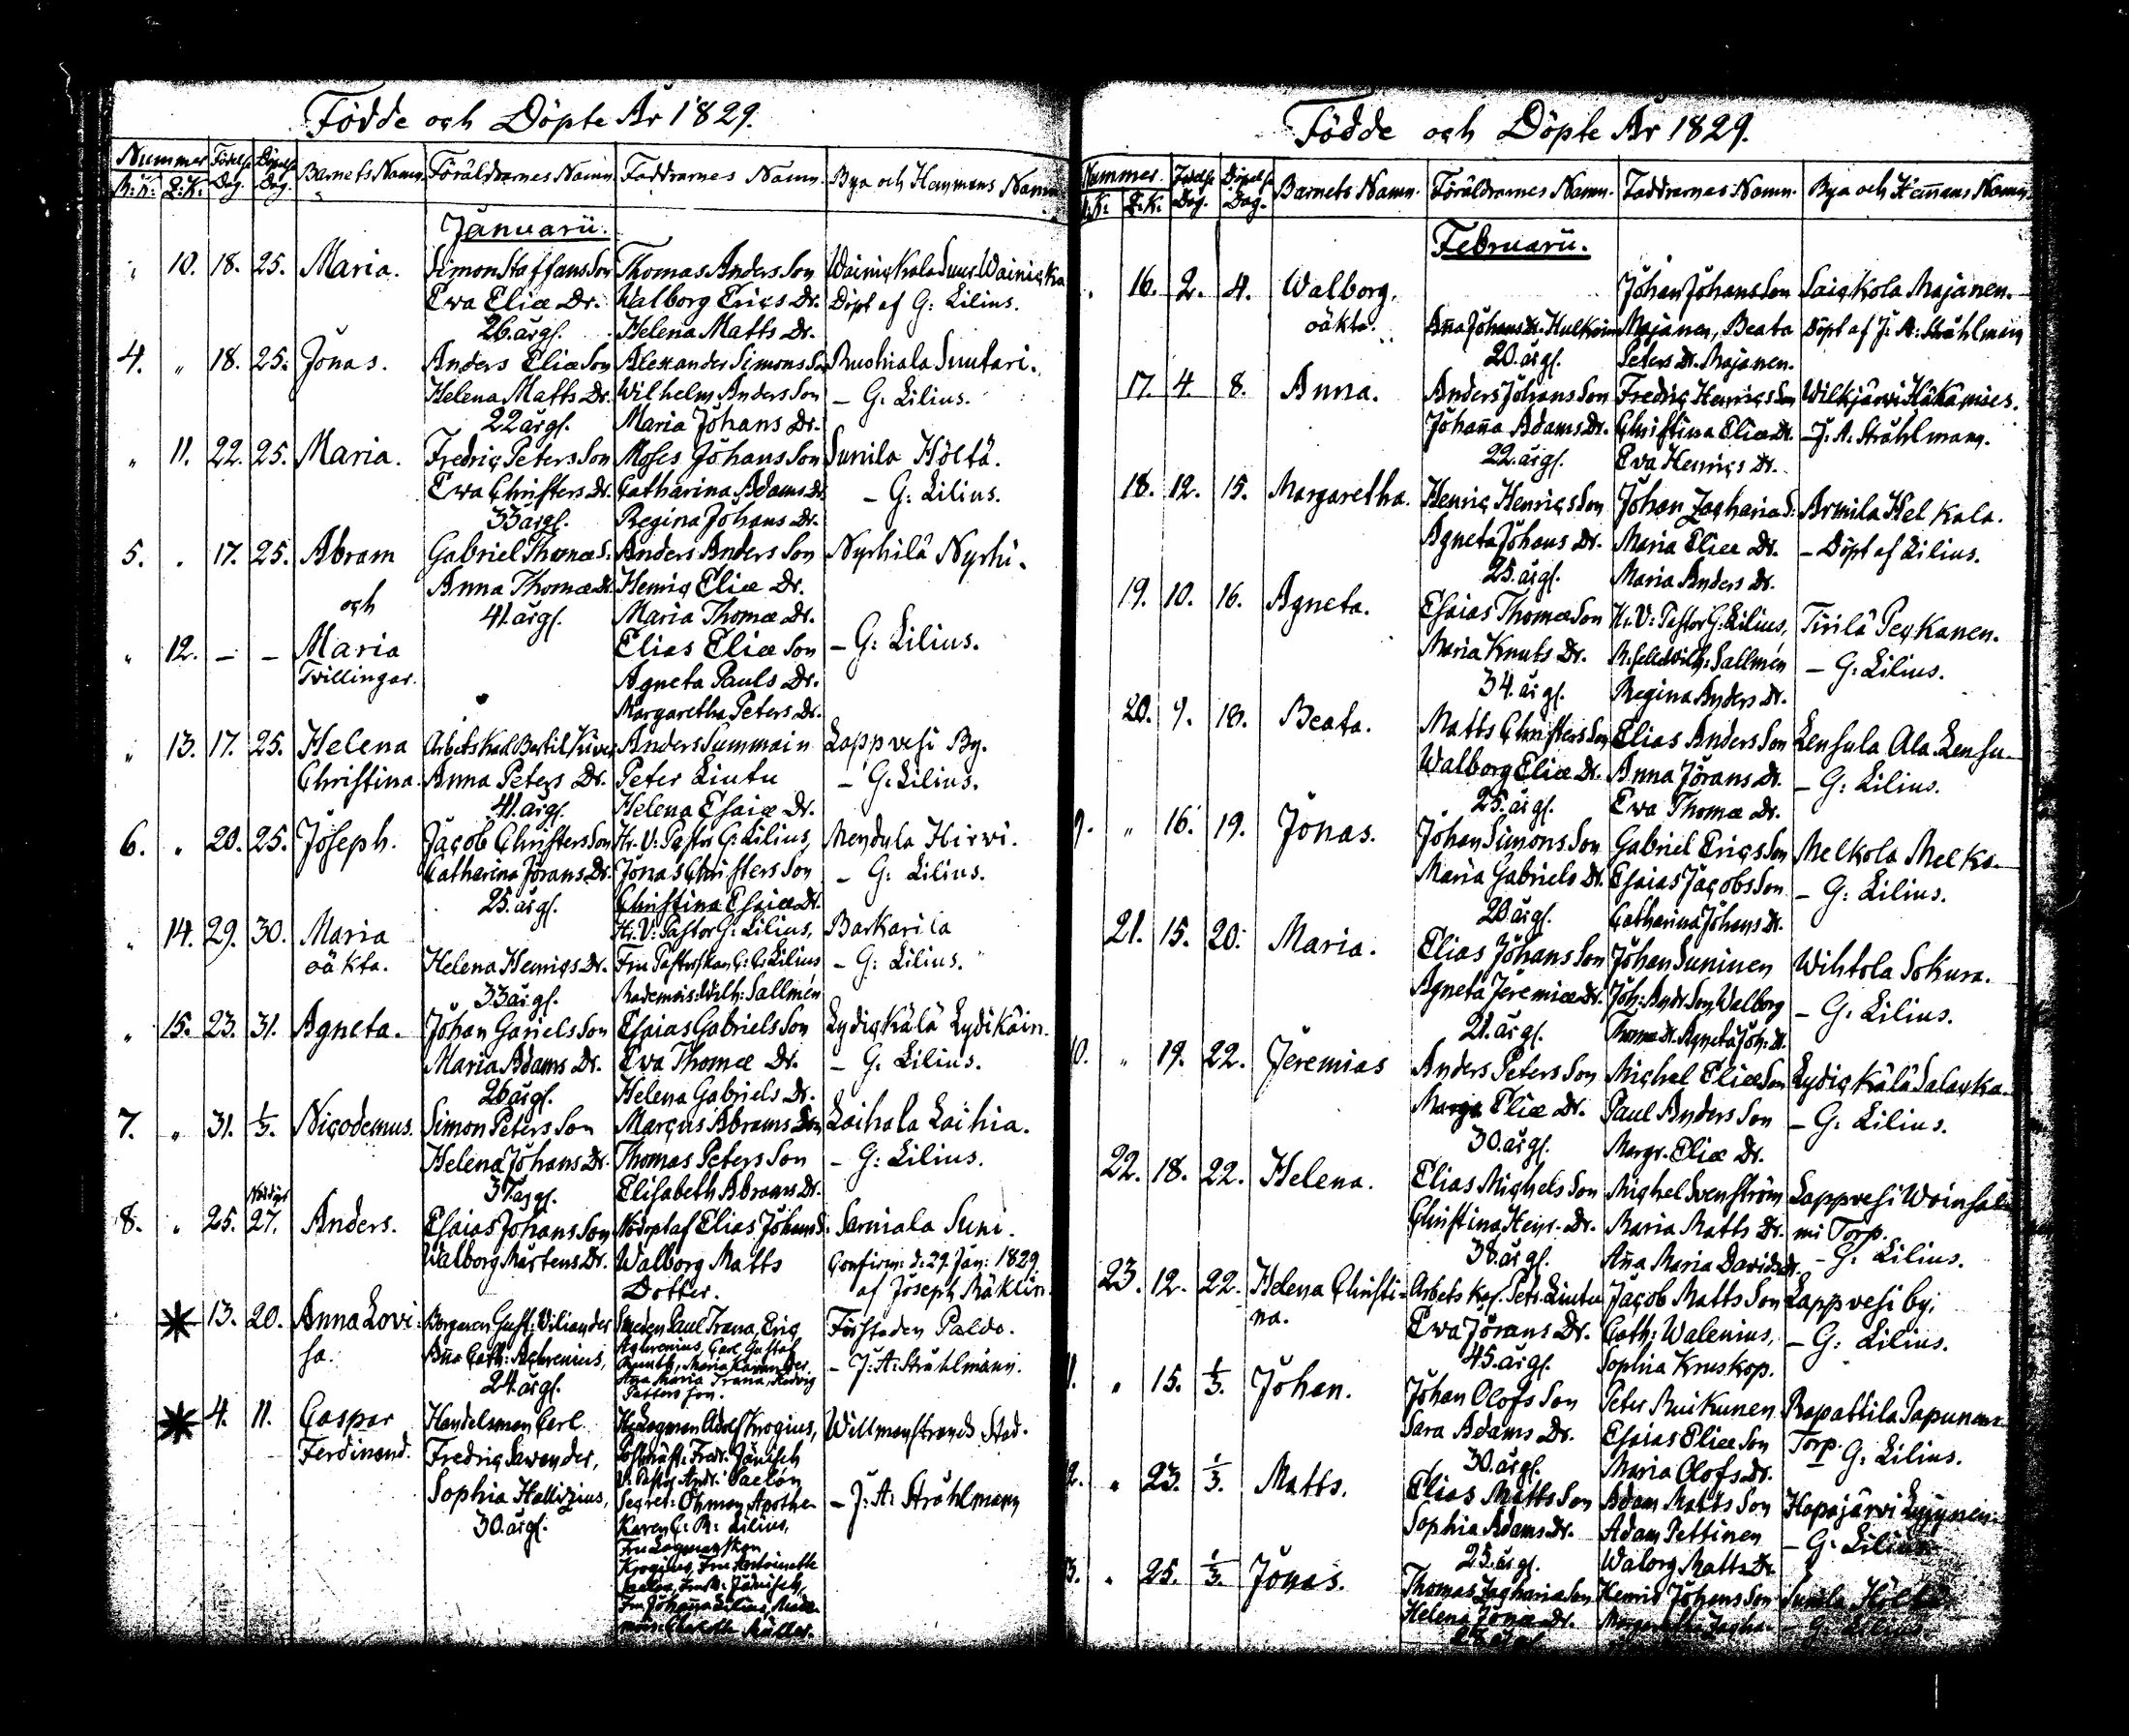 Födde och Döpte År 1829.
Nummer Födelse Dag. Döpelse Dag. Barnets Namn. Föräldrarnes Namn. Faddrarnes Namn. Bya och Hemmans Namn
M:K: Q:K:
Januarii.
" 10. 18. 25. Maria. Simon Staffans Son Thomas Anders Son Wainickala Suur Wainicka
Ewa Eliæ Dr. Walborg Erics Dr. Döpt af G: Lilius.
26. årg. Helena Matts Dr.
4. " 18. 25. Jonas. Anders Eliæ Son Alexander Simons Son Ruohiala Suutari.
Helena Matts Dr. Wilhelm Anders Son – G: Lilius.
22 årg. Maria Johans Dr.
" 11. 22. 25. Maria. Fredric Peters Son Moses Johans Son Sunila Höltä.
Ewa Christers Dr. Catharina Adams Dr. – G: Lilius.
33 årg. Regina Johans Dr.
5. " 17. 25. Abram Gabriel Thomæ S. Anders Anders Son Nyrhilä Nyrhi.
Anna Thomæ Dr. Henric Eliæ Dr.
och 41. årg. Maria Thomæ Dr.
" 12. – – Maria Elias Eliæ Son – G: Lilius.
Tvillingar. Agneta Pauls Dr.
Margaretha Peters Dr.
" 13. 17. 25. Helena Arbets Karl Bertil Anders Summain Lappvesi By.
Christina. Anna Peters Dr. Peter Liutu – G: Lilius.
41. årg. Helena Esaiæ Dr.
6. " 20. 25. Joseph. Jacob Christers Son Hr. V: Pastor G: Lilius, Mendula Hirwi.
Catharina Jörans Dr. Jonas Christers Son – G: Lilius.
25. årg. Christina Esaiæ Dr.
" 14. 29. 30. Maria Hr. V: Pastor G: Lilius, Barkarila
oäkta. Helena Henrics Dr. Fru Pastorskan C: C: Lilius – G: Lilius.
33 årg. Mademois: Wilh: Sallmén
" 15. 23. 31. Agneta. Johan Gariels Son Esaias Gabriels Son Lydickälä Lydikäin.
Maria Adams Dr. Ewa Thomæ Dr. – G: Lilius.
26 årg. Helena Gabriels Dr.
7. " 31. 1/3. Nicodemus. Simon Peters Son Marcus Abrams Son Laihala Laihia.
Helena Johans Dr. Thomas Peters Son – G: Lilius.
37 årg. Elisabeth Abrams Dr.
8. " 25. 27. Anders. Esaias Johans Son Nöddöpt af Elias Johans S. Sarviala Suni.
Walborg Mårtens Dr. Walborg Matts Confirm: d: 29. Jan: 1829.
Dotter. af Joseph Mäklin.
13. 20. Anna Lovi- Borgaren Gust: Viliander Smeden Paul Trana, Eric Förstaden Paldo.
sa. Aña Cath: Agrenius, Agrenius, Carl Gustaf – J: A: Stråhlmann.
24. årg. Aña Maria Trana, Hedvig
Pettersson.
4. 11. Caspar Handelsman Carl Hr Lagman Adolf Krogius, Willmanstrands Stad.
Ferdinand. Fredric Savander, Fredr: Jänisch
V: Pastor Andr: Saelan
Sophia Hallizius, Secret: Öhman, Apothe- – J: A: Stråhlmann
30. årg. karen C: R: Lilius,
Fru Lagmanskan
Krogius, Fru Antoinette
Fru Johanna Lilius, Made-
mois: Charlotte Müller.
Födde och Döpte År 1829.
Nummer Födelse Dag. Döpelse Dag. Barnets Namn. Föräldrarnes Namn. Faddrarnes Namn. Bya och Hem̃ans Namn.
M:K: Q:K:
Februarii.
16. 2. 4. Walborg. Johan Johans Son Saickola Majanen.
oäkta. Aña Johans Dr. Hulkoin Majanen, Beata Döpt af J: A: Stråhlman
20. årg. Peters Dr. Majanen.
17. 4. 8. Anna. Anders Johans Son Fredric Henrics Son Wilkjärvi Häkämies.
Johaña Adams Dr. Christina Eliæ Dr. – J: A. Stråhlmann.
22. årg. Ewa Henrics Dr.
18. 12. 15. Margaretha. Henric Henrics Son Johan Zacharia S: Armila Helkala.
Agneta Johans Dr. Maria Eliæ Dr. – Döpt af Lilius.
25. årg. Maria Anders Dr.
19. 10. 16. Agneta. Esaias Thomæ Son Hr. V: Pastor G. Lilius, Tirilä Peckanen.
Maria Knuts Dr. Wilh: Sallmén – G: Lilius.
34. årg. Regina Anders Dr.
20. 9. 18. Beata. Matts Christers Son Elias Anders Son Lensula Ala Lensu
Walborg Eliæ Dr. Anna Jörans Dr. – G: Lilius.
25. årg. Ewa Thomæ Dr.
9. " 16. 19. Jonas. Johan Simons Son Gabriel Erics Son Melkola Melko
Maria Gabriels Dr. Esaias Jacobs Son – G: Lilius.
20 årg. Catharina Johans Dr.
21. 15. 20. Maria. Elias Johans Son Johan Suninen Wihtola Sokura.
Agneta Jeremiæ Dr. Joh: Andr. Son, Walborg – G: Lilius.
21. årg. Thomæ Dr. Agneta Joh: Dr.
10. " 19. 22. Jeremias Anders Peters Son Michel Eliæ Son Lydickälä Salacka
Margr Eliæ Dr. Paul Anders Son – G: Lilius.
30. årg. Margr. Eliæ Dr.
22. 18. 22. Helena. Elias Michels Son Michel Svenström Lappvesi Woinsal-
Christina Henr. Dr. Maria Matts Dr. mi Torp.
38. årg. Aña Maria Davids Dr. – G: Lilius.
23. 12. 22. Helena Christi- Arbets Ka. Petr. Liutu Jacob Matts Son Lappvesi by.
na. Ewa Jörans Dr. Cath: Walenius, – G: Lilius.
45. årg. Sophia Kruskop.
11. " 15. 1/3. Johan. Johan Olofs Son Peter Ruikunen Rapattila Papunen
Sara Adams Dr. Esaias Eliæ Son Torp. G: Lilius.
30. årg. Maria Olofs Dr.
12. " 23. 1/3. Matts. Elias Matts Son Adam Matts Son Hapajärvi
Sophia Adams Dr. Adam Pettinen – G: Lilius.
25. årg. Walorg Matts Dr.
13. " 25. 1/3. Jonas. Thomas Zacharia Son Henric Johans Son Sunila Höltä
Helena Jonæ Dr. Margaretha Zacha- – G: Lilius.